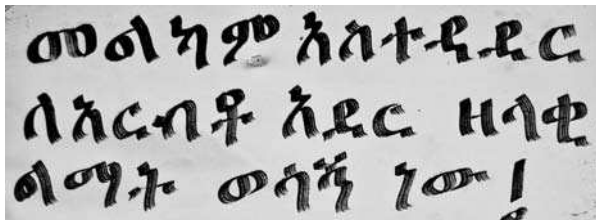 መልካም አስተዳደር
ለአርብቶ አደር ዘላቂ
ልማት ወሳኝ ነው!